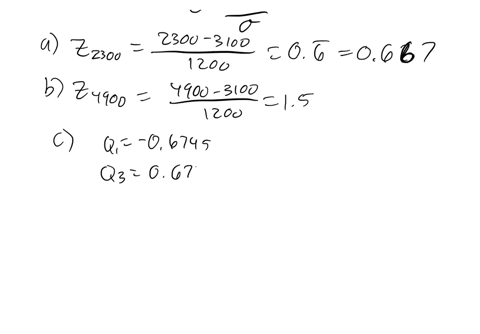 σ
a) Z2300 = (2300-3100)/1200 = 0.6̄ = 0.667
b) Z4900 = (4900-3100)/1200 = 1.5
c) Q1 = -0.6745
Q3 = 0.67